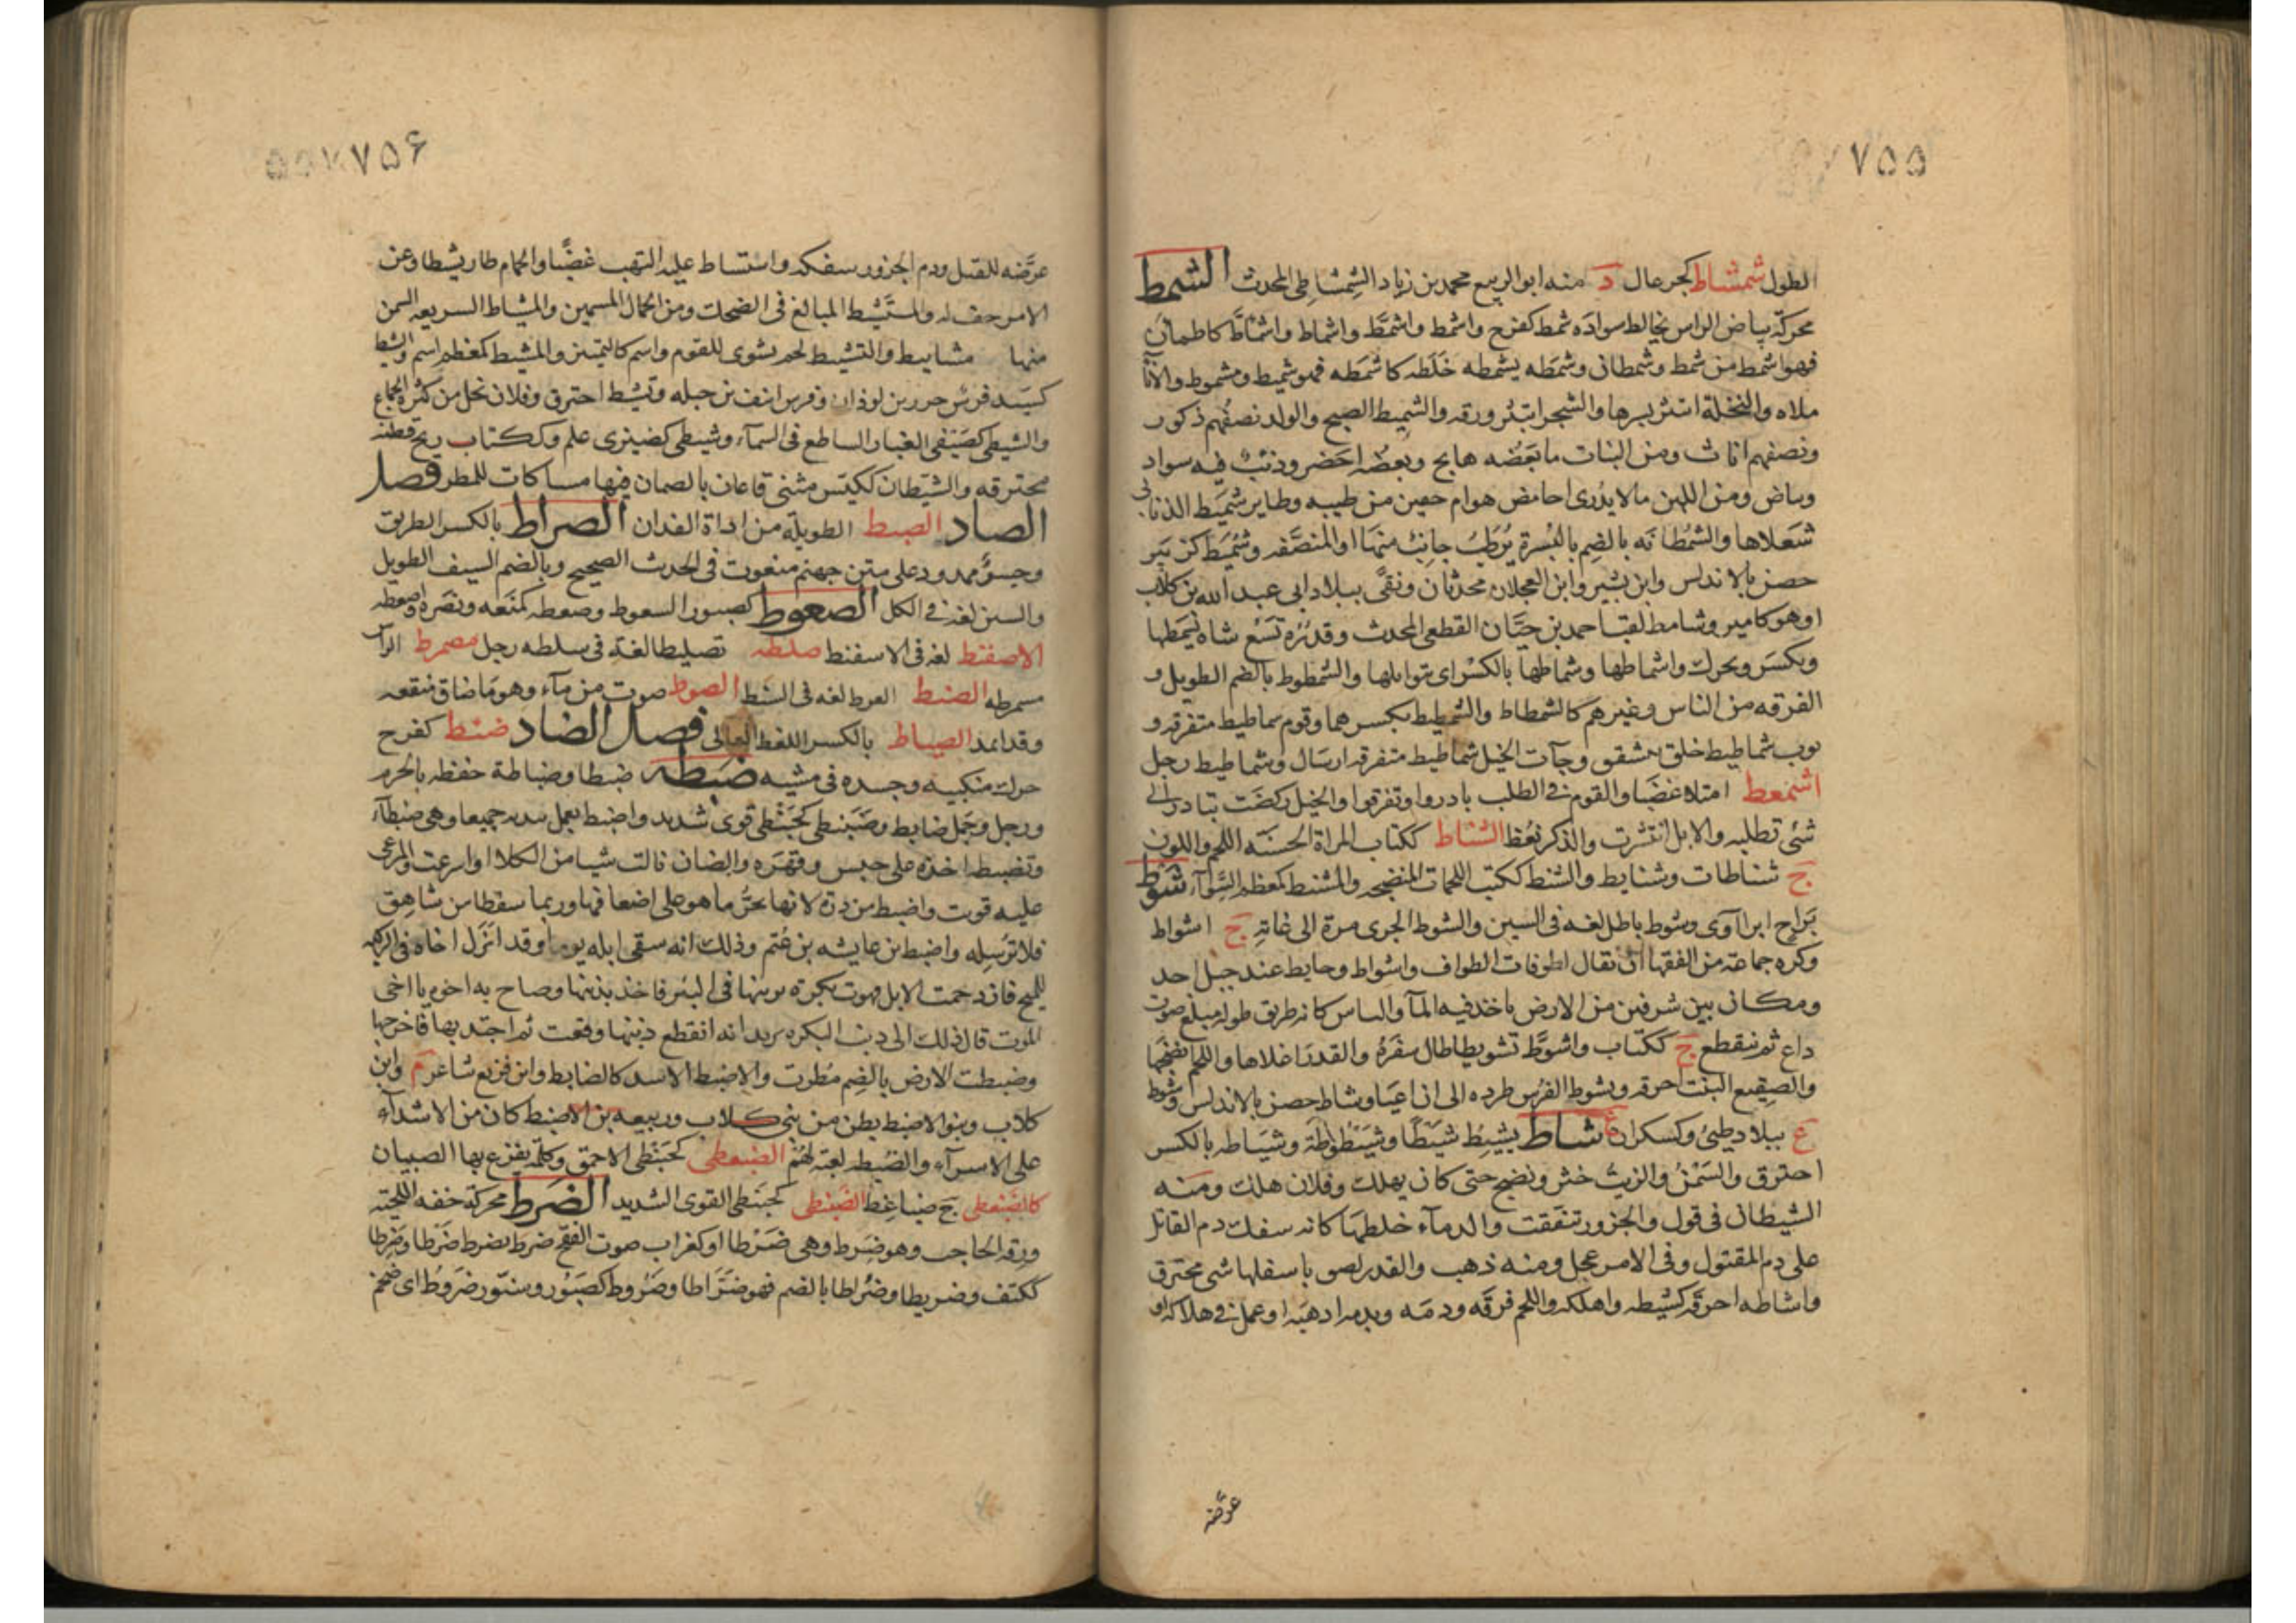 ٧٥٥
الطول شمشاط كجرعال د منه ابو الربيع محمد بن زياد الشمشاطى المحدث الشمط
محركة بياض الراس يخالط سواده شمط كفرح واشمط واشمطّ واشماط واشماطّ كاطمان
فهو اشمط من شمط وشمطان وشمطه يشمطه خلطه كاشمطه فهو شميط ومشموط والانآ
ملاه والنخلة انتثر بسرها والشجر انتثر ورقه والشميط الصبح والولد نصفهم ذكور
ونصفهم اناث ومن النبات ما بعضه هايج وبعضه اخضر وذئب فيه سواد
وبياض ومن اللبن مالا يدرى احامض هو ام حقين من طيبه وطاير شميط الذنابى
شعلاها والشمطانه بالضم بالبسرة يرطب جانب منها او المنصفه وشميط كزبير
حصن بالاندلس وابن بشير وابن العجلان محدثان ونقىّ ببلاد ابى عبد الله بن كلاب
او هو كامير وشامط لقب احمد بن حيان القطعى المحدث وقدر تسع شاة بشمطها
وبكسر ويحرك واشماطها وشماطها بالكسر اى بتوابلها والشمطوط بالضم الطويل و
الفرقه من الناس وغيرهم كالشمطاط والشمطيط بكسرهما وقوم شماطيط متفرقه و
ثوب شماطيط خلق متشقق وجآت الخيل شماطيط متفرقه ارسال وشماطيط رجل
اشمعط امتلا غضبا والقوم فى الطلب بادروا وتفرقوا والخيل ركضت تبادر الى
شئ تطلبه والابل انتشرت والذكر نعظ الشناط ككتاب المراة الحسنه اللحم واللون
ج شناطات وشنايط والشنط ككتب اللحمات المنضجه والمشنط كمعظم الشوآء شوط
براح ابن آوى وشوط باطل لغه فى السين والشوط الجرى مرة الى غاية ج اشواط
وكره جماعة من الفقها ان يقال لطوفات الطواف واشواط وحايط عند جبل احد
ومكان بين شرفين من الارض ياخذ فيه المآ والناس كانه طريق طوله مبلغ صوت
داع ثم ينقطع ج ككتاب واشوط تشويطا طال سفره والقدر اغلاها واللحم نضجها
والصقيع النبت احرقه وشوط الفرس طرده الى ان اعيا وشاط حصن بالاندلس وشوط
ع ببلاد طيئ وكسكران شاط يشيط شيطا وشيطوطة وشياطه بالكسر
احترق والسمن والزيت خثر ونضج حتى كان يهلك وفلان هلك ومنه
الشيطان فى قول والجزور تنفقت والدمآء خلطها كانه سفك دم القاتل
على دم المقتول وفى الامر عجل ومنه ذهب والقدر لصق باسفلها شى محترق
واشاطه احرقه كشيطه واهلكه واللحم فرقه ودمه وبدمه اذهبه او عمل فى هلاكه او
عرّضه
٧٥۶
عرّضه للقتل ودم الجزور سفكه واستشاط عليه التهب غضبا والحمام طار نشيطا وعن
الامر خف له والمستشيط المبالغ فى الضحك ومن الجمال السمين والمشياط السريعه السمن
منها مشاييط والتشييط لحم يشوى للقوم واسم كالتمتين والمشيط كمعظم اسم والشيط
كسيد فرس خزز بن لوذان وفرس انيف بن جبله وتشيط احترق وفلان نحل من كثرة الجماع
والشيطى كصيفى الغبار الساطع فى السمآء وشيطى كضيزى علم وككتاب ريح قطنه
محترقه والشيطان ككيس مثنى قاعان بالصمان فيها مساكات للمطر فصل
الصاد الصبط الطويلة من اداة الفدان الصراط بالكسر الطريق
وجسر ممدود على متن جهنم منعوت فى الحدث الصحيح وبالضم السيف الطويل
والسين لغة فى الكل الصعوط كصبور السعوط وصعطه كمنعه ونصره واصعطه
الاصفنط لغه فى الاسفنط صلطه تصليطا لغة فى سلطه رجل مصمرط الراس
مسمرطه الصنط القرط لغه فى السنط الصوط صوت من مآء وهو ما ضاق منقعه
وقد امتد الصياط بالكسر اللغط العالى فصل الضاد ضئط كفرح
حرك منكبيه وجسده فى مشيه ضبطه ضبطا وضباطة حفظه بالحزم
ورجل وجمل ضابط وضبنطى كحبنطى قوى شديد واضبط يعمل بيديه جميعا وهى ضبطآء
وتضبطه اخذه على حبس وقهره والضان نالت شيا من الكلا او اسرعت فى المرعى
عليه قوت واضبط من ذرة لانها تجر ما هو على اضعافها وربما سقطا من شاهق
فلا ترسله واضبط بن عايشه بن عثم وذلك انه سقى ابله يوما وقد انزل اخاه فى الركيه
للميح فازدحمت الابل فهوت بكرة منها فى البئر فاخذ بذنبها وصاح به اخوه يا اخى
الموت قال ذلك الى ذنب البكره يريد انه انقطع ذنبها وقعت ثم اجتذبها فاخرجها
وضبطت الارض بالضم مطرت والاضبط الاسد كالضابط وابن قريع شاعر م وابن
كلاب وبنو الاضبط بطن من بنى كلاب وربيعه بن الاضبط كان من الاشدآء
على الاسرآء والضبطه لعبة لهم الضبعطى كحبنطى الاحمق وكلمة يفزع بها الصبيان
كالضبغطى ج ضباغط الضبنطى كحبنطى القوى الشديد الضرط محركة خفه اللحية
ورقه الحاجب وهو ضرط وهى ضرطا او كغراب صوت الفقح ضرط يضرط ضرطا وضرطا
ككتف وضريطا وضراطا بالضم فهو ضراطا وضروط كصبور وسنور ضروط اى ضخم